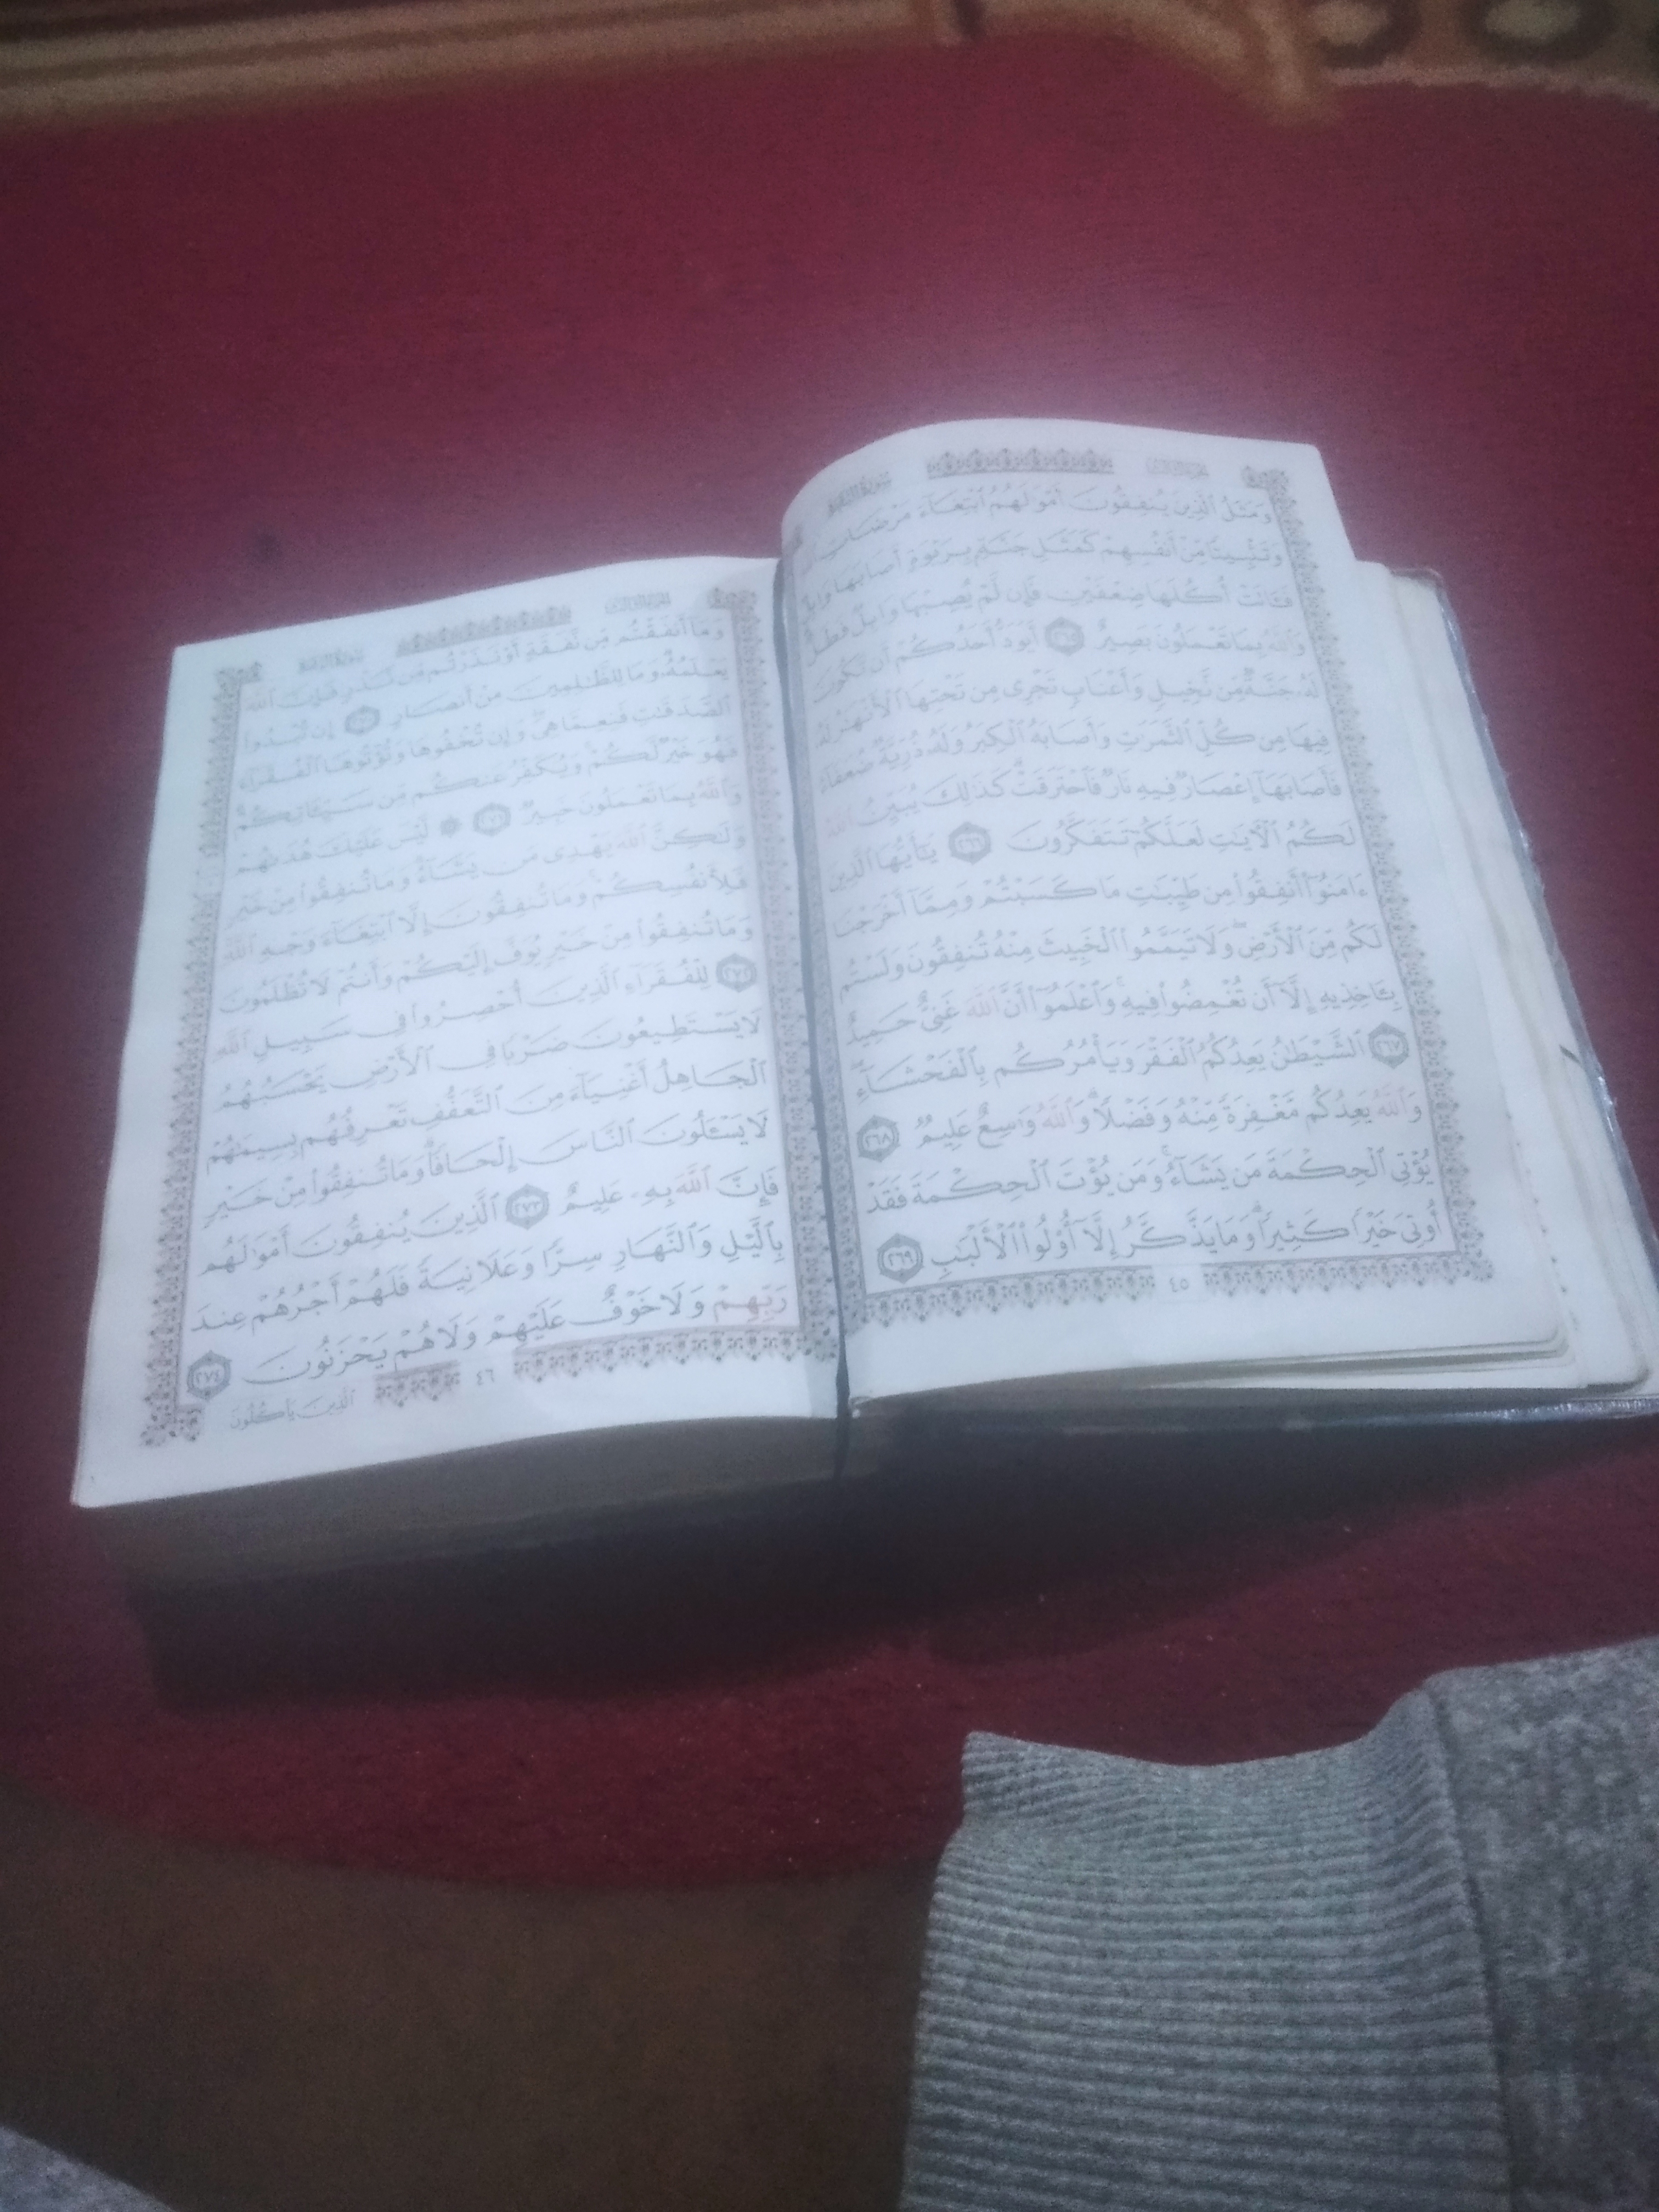 وَمَثَلُ ٱلَّذِينَ يُنفِقُونَ أَمْوَٰلَهُمُ ٱبْتِغَآءَ مَرْضَاتِ
وَتَثْبِيتًا مِّنْ أَنفُسِهِمْ كَمَثَلِ جَنَّةٍۭ بِرَبْوَةٍ أَصَابَهَا وَابِلٌ
فَـَٔاتَتْ أُكُلَهَا ضِعْفَيْنِ فَإِن لَّمْ يُصِبْهَا وَابِلٌ فَطَلٌّ
وَٱللَّهُ بِمَا تَعْمَلُونَ بَصِيرٌ ٢٦٥ أَيَوَدُّ أَحَدُكُمْ أَن تَكُونَ
لَهُۥ جَنَّةٌ مِّن نَّخِيلٍ وَأَعْنَابٍ تَجْرِى مِن تَحْتِهَا ٱلْأَنْهَٰرُ لَهُۥ
فِيهَا مِن كُلِّ ٱلثَّمَرَٰتِ وَأَصَابَهُ ٱلْكِبَرُ وَلَهُۥ ذُرِّيَّةٌ ضُعَفَآءُ
فَأَصَابَهَآ إِعْصَارٌ فِيهِ نَارٌ فَٱحْتَرَقَتْ ۗ كَذَٰلِكَ يُبَيِّنُ ٱللَّهُ
لَكُمُ ٱلْـَٔايَٰتِ لَعَلَّكُمْ تَتَفَكَّرُونَ ٢٦٦ يَٰٓأَيُّهَا ٱلَّذِينَ
ءَامَنُوٓا۟ أَنفِقُوا۟ مِن طَيِّبَٰتِ مَا كَسَبْتُمْ وَمِمَّآ أَخْرَجْنَا
لَكُم مِّنَ ٱلْأَرْضِ ۖ وَلَا تَيَمَّمُوا۟ ٱلْخَبِيثَ مِنْهُ تُنفِقُونَ وَلَسْتُم
بِـَٔاخِذِيهِ إِلَّآ أَن تُغْمِضُوا۟ فِيهِ ۚ وَٱعْلَمُوٓا۟ أَنَّ ٱللَّهَ غَنِىٌّ حَمِيدٌ
٢٦٧ ٱلشَّيْطَٰنُ يَعِدُكُمُ ٱلْفَقْرَ وَيَأْمُرُكُم بِٱلْفَحْشَآءِ ۖ
وَٱللَّهُ يَعِدُكُم مَّغْفِرَةً مِّنْهُ وَفَضْلًا ۗ وَٱللَّهُ وَٰسِعٌ عَلِيمٌ ٢٦٨
يُؤْتِى ٱلْحِكْمَةَ مَن يَشَآءُ ۚ وَمَن يُؤْتَ ٱلْحِكْمَةَ فَقَدْ
أُوتِىَ خَيْرًا كَثِيرًا ۗ وَمَا يَذَّكَّرُ إِلَّآ أُو۟لُوا۟ ٱلْأَلْبَٰبِ ٢٦٩
٤٥
وَمَآ أَنفَقْتُم مِّن نَّفَقَةٍ أَوْ نَذَرْتُم مِّن نَّذْرٍ فَإِنَّ ٱللَّهَ
يَعْلَمُهُۥ ۗ وَمَا لِلظَّٰلِمِينَ مِنْ أَنصَارٍ ٢٧٠ إِن تُبْدُوا۟
ٱلصَّدَقَٰتِ فَنِعِمَّا هِىَ ۖ وَإِن تُخْفُوهَا وَتُؤْتُوهَا ٱلْفُقَرَآءَ
فَهُوَ خَيْرٌ لَّكُمْ ۚ وَيُكَفِّرُ عَنكُم مِّن سَيِّـَٔاتِكُمْ ۗ
وَٱللَّهُ بِمَا تَعْمَلُونَ خَبِيرٌ ٢٧١ ۞ لَّيْسَ عَلَيْكَ هُدَىٰهُمْ
وَلَٰكِنَّ ٱللَّهَ يَهْدِى مَن يَشَآءُ ۗ وَمَا تُنفِقُوا۟ مِنْ خَيْرٍ
فَلِأَنفُسِكُمْ ۚ وَمَا تُنفِقُونَ إِلَّا ٱبْتِغَآءَ وَجْهِ ٱللَّهِ ۚ
وَمَا تُنفِقُوا۟ مِنْ خَيْرٍ يُوَفَّ إِلَيْكُمْ وَأَنتُمْ لَا تُظْلَمُونَ
٢٧٢ لِلْفُقَرَآءِ ٱلَّذِينَ أُحْصِرُوا۟ فِى سَبِيلِ ٱللَّهِ
لَا يَسْتَطِيعُونَ ضَرْبًا فِى ٱلْأَرْضِ يَحْسَبُهُمُ
ٱلْجَاهِلُ أَغْنِيَآءَ مِنَ ٱلتَّعَفُّفِ تَعْرِفُهُم بِسِيمَٰهُمْ
لَا يَسْـَٔلُونَ ٱلنَّاسَ إِلْحَافًا ۗ وَمَا تُنفِقُوا۟ مِنْ خَيْرٍ
فَإِنَّ ٱللَّهَ بِهِۦ عَلِيمٌ ٢٧٣ ٱلَّذِينَ يُنفِقُونَ أَمْوَٰلَهُم
بِٱلَّيْلِ وَٱلنَّهَارِ سِرًّا وَعَلَانِيَةً فَلَهُمْ أَجْرُهُمْ عِندَ
رَبِّهِمْ وَلَا خَوْفٌ عَلَيْهِمْ وَلَا هُمْ يَحْزَنُونَ ٢٧٤
٤٦
ٱلَّذِينَ يَأْكُلُونَ